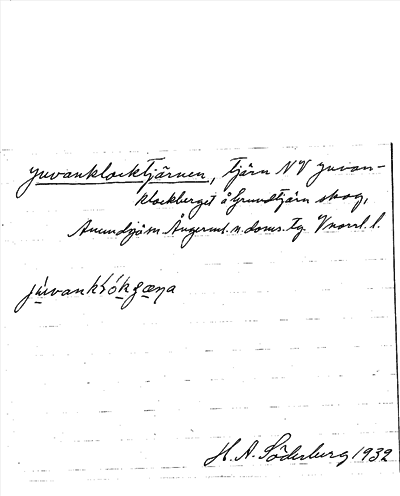 Juvanklocktjärnen, tjärn NV Juvan-
klockberget å Grundtjärn skog,
Anundsjö sn Ångerml. n. doms. tg. Vnorrl. l.
H. A. Söderberg 1932